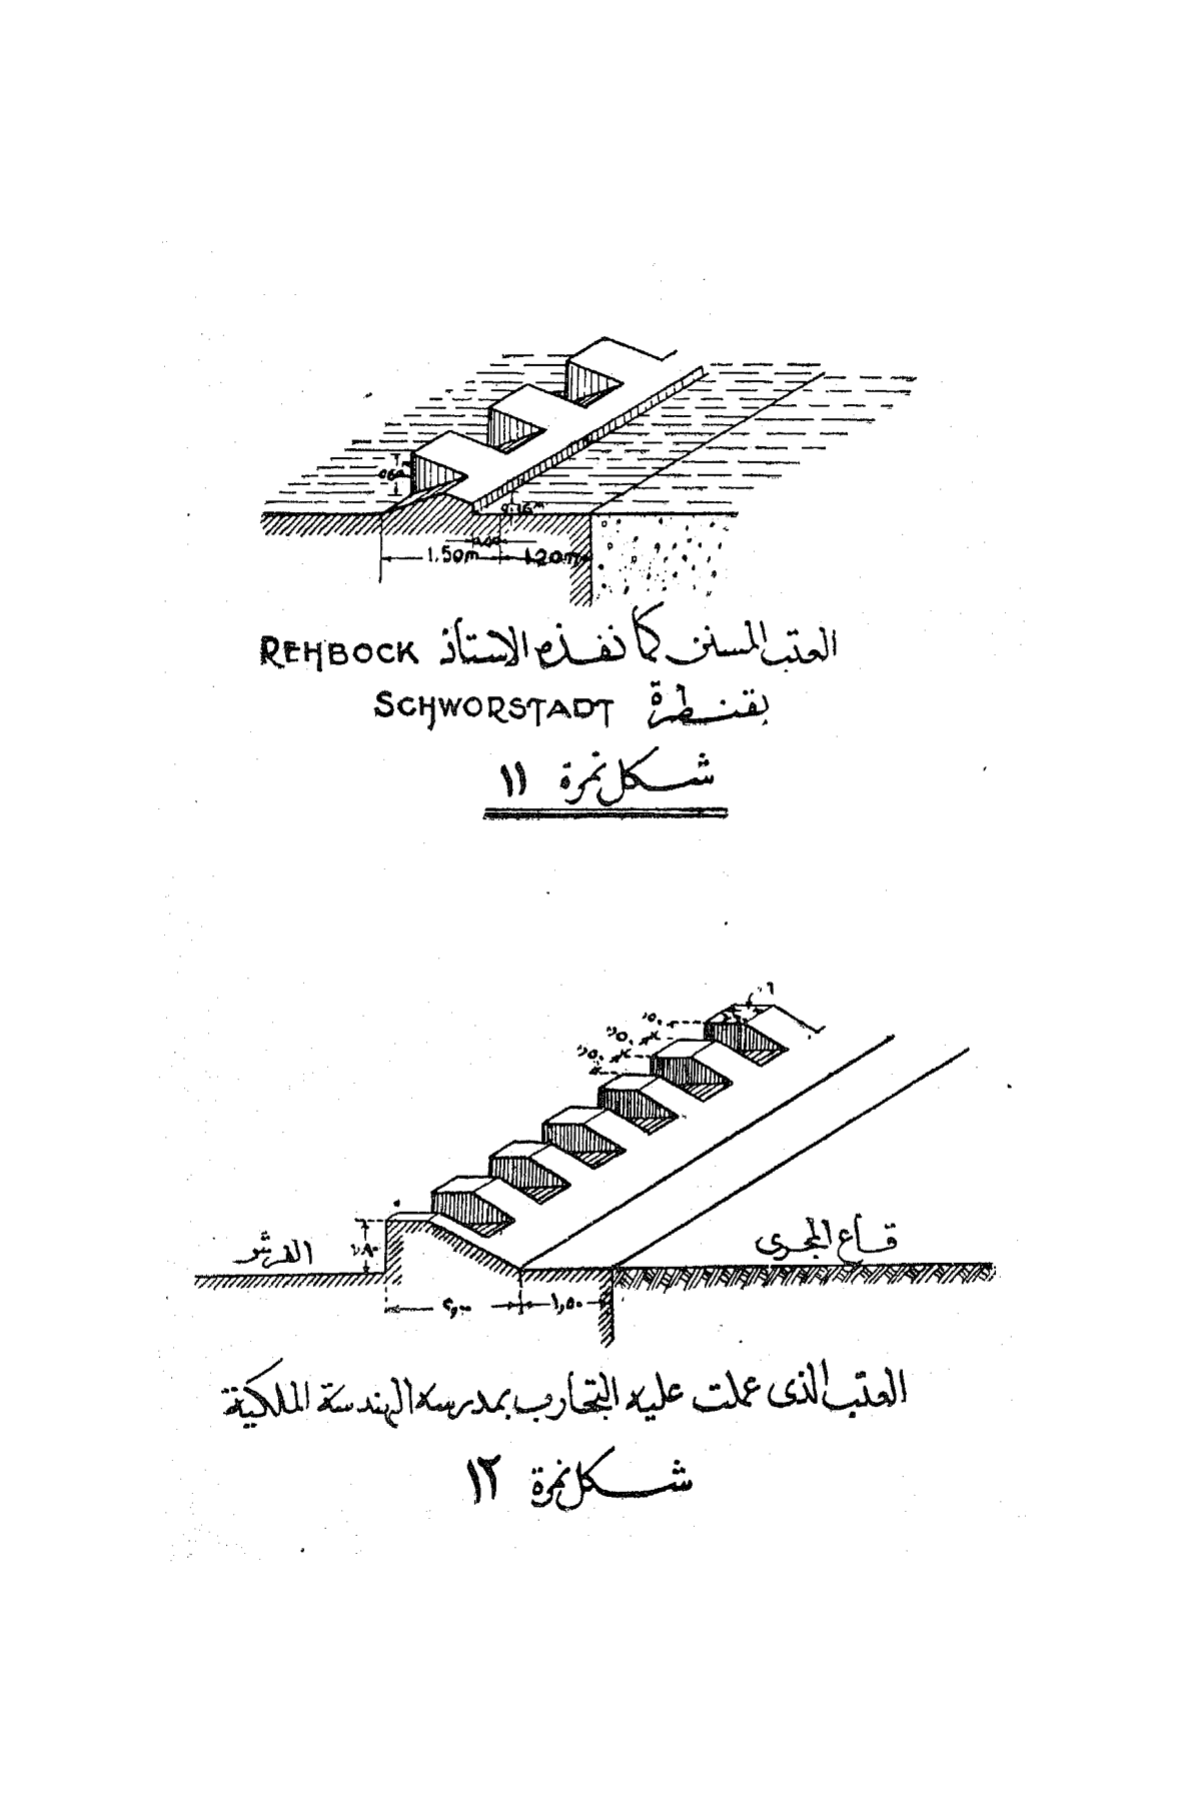 0.16m
1.50m
1.20m
العتب المسنن كما نفذه الاستاذ REHBOCK
بقنطرة SCHWORSTADT
شكل نمرة ١١
الفرش
قاع المجرى
٢,٠٠
١,٥٠
العتب الذى عملت عليه التجارب بمدرسة الهندسة الملكية
شكل نمرة ١٢